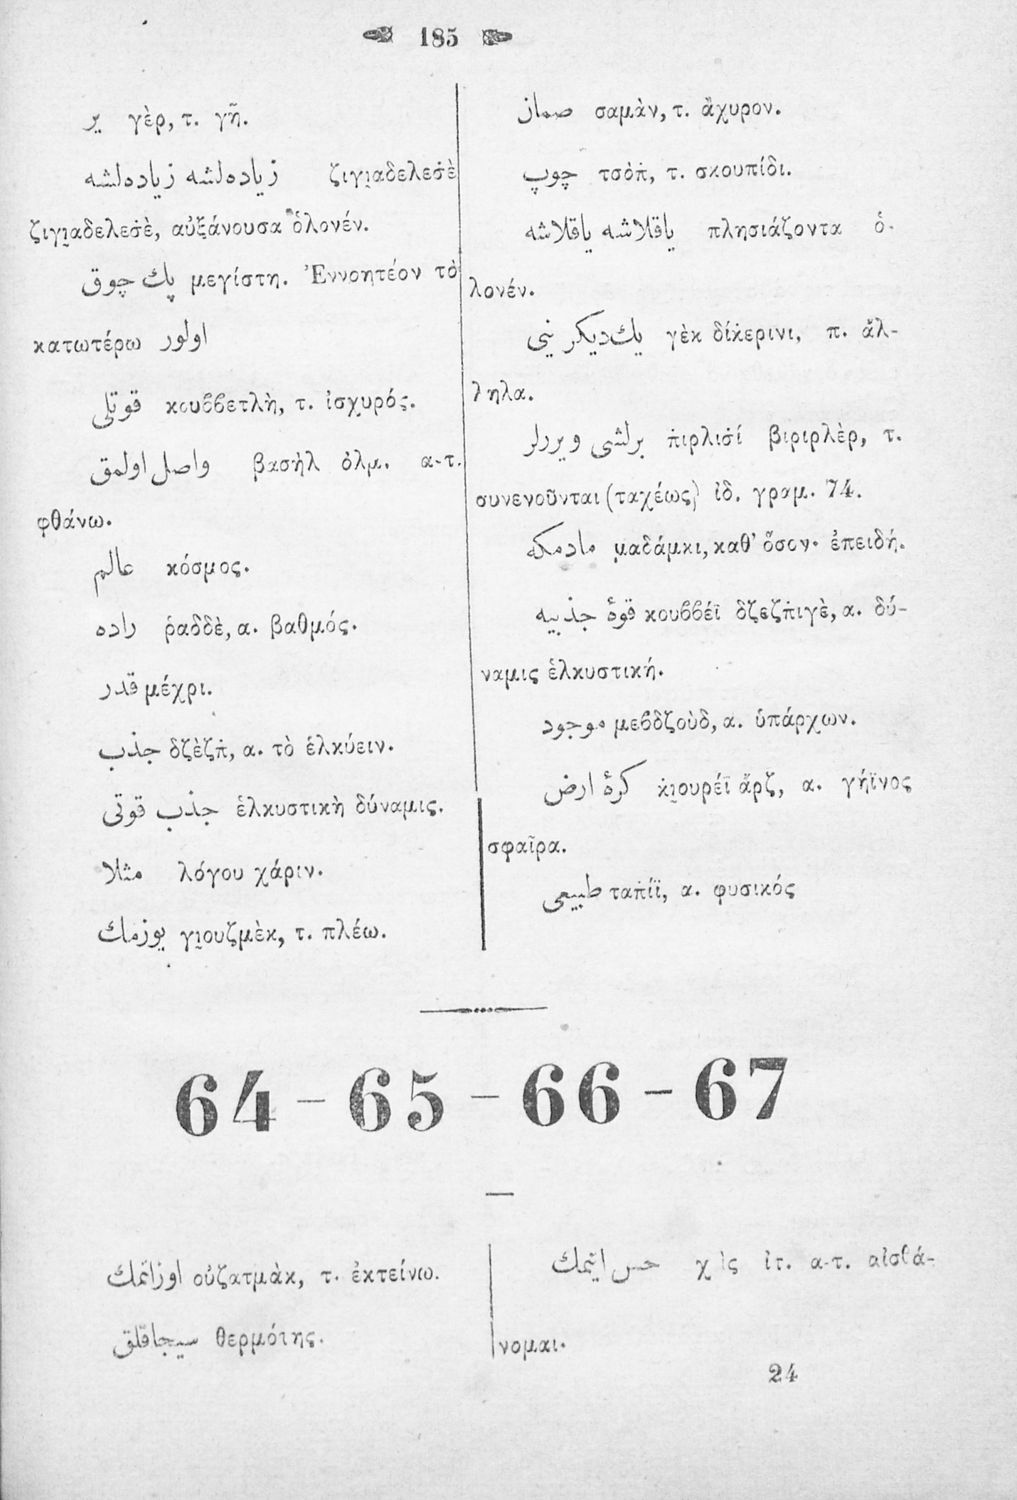 185
ير γὲρ, τ. γῆ.
زياده‌لشه زياده‌لشه ζιγιαδελεσὲ
ζιγιαδελεσὲ, αὐξάνουσα ὁλονέν.
پك چوق μεγίστη. Ἐννοητέον τὸ
κατωτέρω اولور
قوتلى κουββετλὴ, τ. ἰσχυρός.
واصل اولمق βασὴλ ὀλμ. α-τ.
φθάνω.
عالم κόσμος.
راده ῥαδδὲ, α. βαθμός.
قدر μέχρι.
جذب δζὲζπ, α. τὸ ἑλκύειν.
جذب قوتى ἑλκυστικὴ δύναμις.
مثلا λόγου χάριν.
يوزمك γιουζμὲκ, τ. πλέω.
صمان σαμὰν, τ. ἄχυρον.
چوپ τσὸπ, τ. σκουπίδι.
ياقلاشه ياقلاشه πλησιάζοντα ὁ-
λονέν.
يك‌ديكر ينى γὲκ δίκερινι, π. ἄλ-
ληλα.
برلشى ويررلر πιρλισί βιριρλὲρ, τ.
συνενοῦνται (ταχέως) ἰδ. γραμ. 74.
مادمكه μαδάμκι, καθ’ ὅσον· ἐπειδή.
قوهٔ جذبيه κουββέϊ δζεζπιγὲ, α. δύ-
ναμις ἑλκυστική.
موجود μεβδζοὺδ, α. ὑπάρχων.
كرهٔ ارض κιουρέϊ ἄρζ, α. γήϊνος
σφαῖρα.
طبيعى ταπίϊ, α. φυσικός
64 – 65 – 66 – 67
اوزاتمك οὐζατμὰκ, τ. ἐκτείνω.
سيجاقلق θερμότης.
حس ايتمك χὶς ἰτ. α-τ. αἰσθά-
νομαι.
24